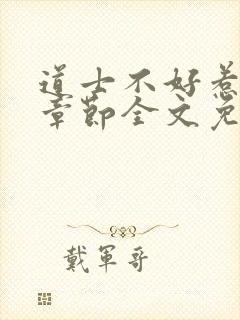 道士不好惹
章节全文免
戴軍哥